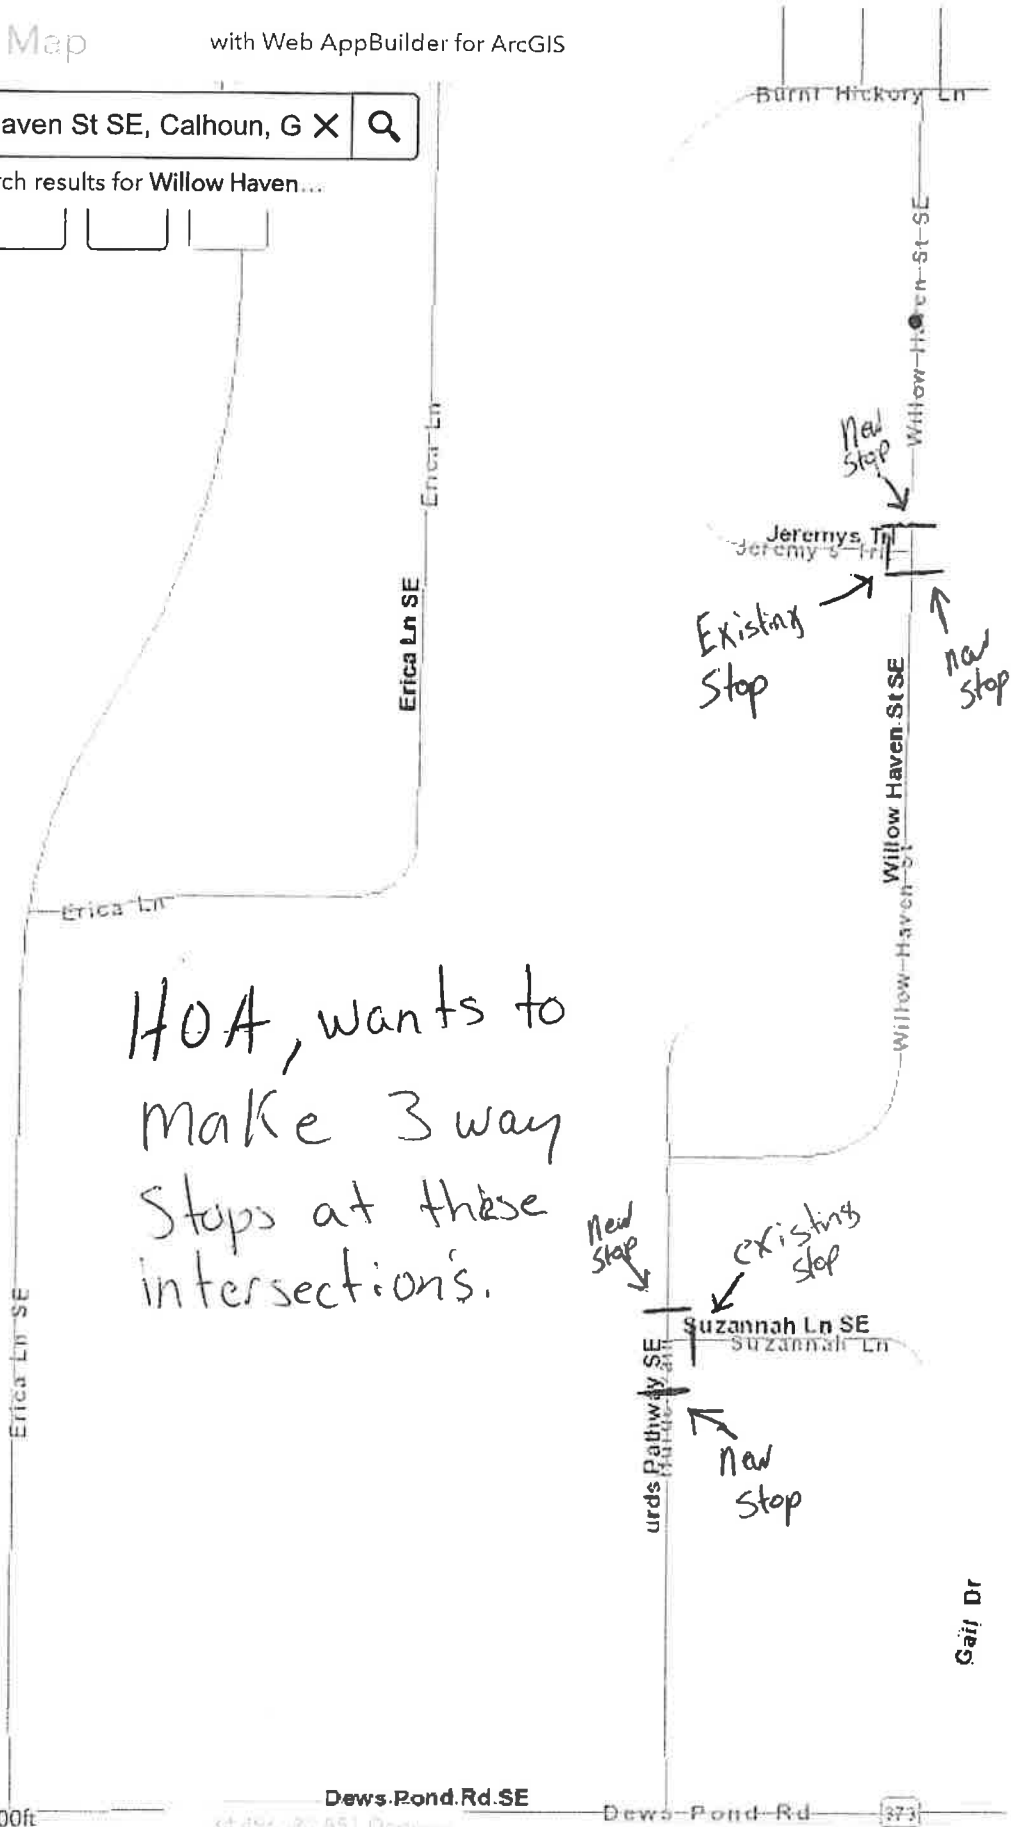 Map
with Web AppBuilder for ArcGIS
aven St SE, Calhoun, G X
rch results for Willow Haven...
Burnt Hickory Ln
Willow Haven St SE
Erica Ln
New
Stop
Jeremys Trl
Jeremy's Trl
Existing
Stop
new
stop
Erica Ln SE
Willow Haven St SE
Willow Haven St
Erica Ln
HOA, wants to
make 3 way
Stops at these
intersection's.
New
Stop
existing
stop
Suzannah Ln SE
Suzannah Ln
Erica Ln SE
urds Pathway SE
new
stop
Gail Dr
Dews Pond Rd SE
Dews Pond Rd
373
00ft